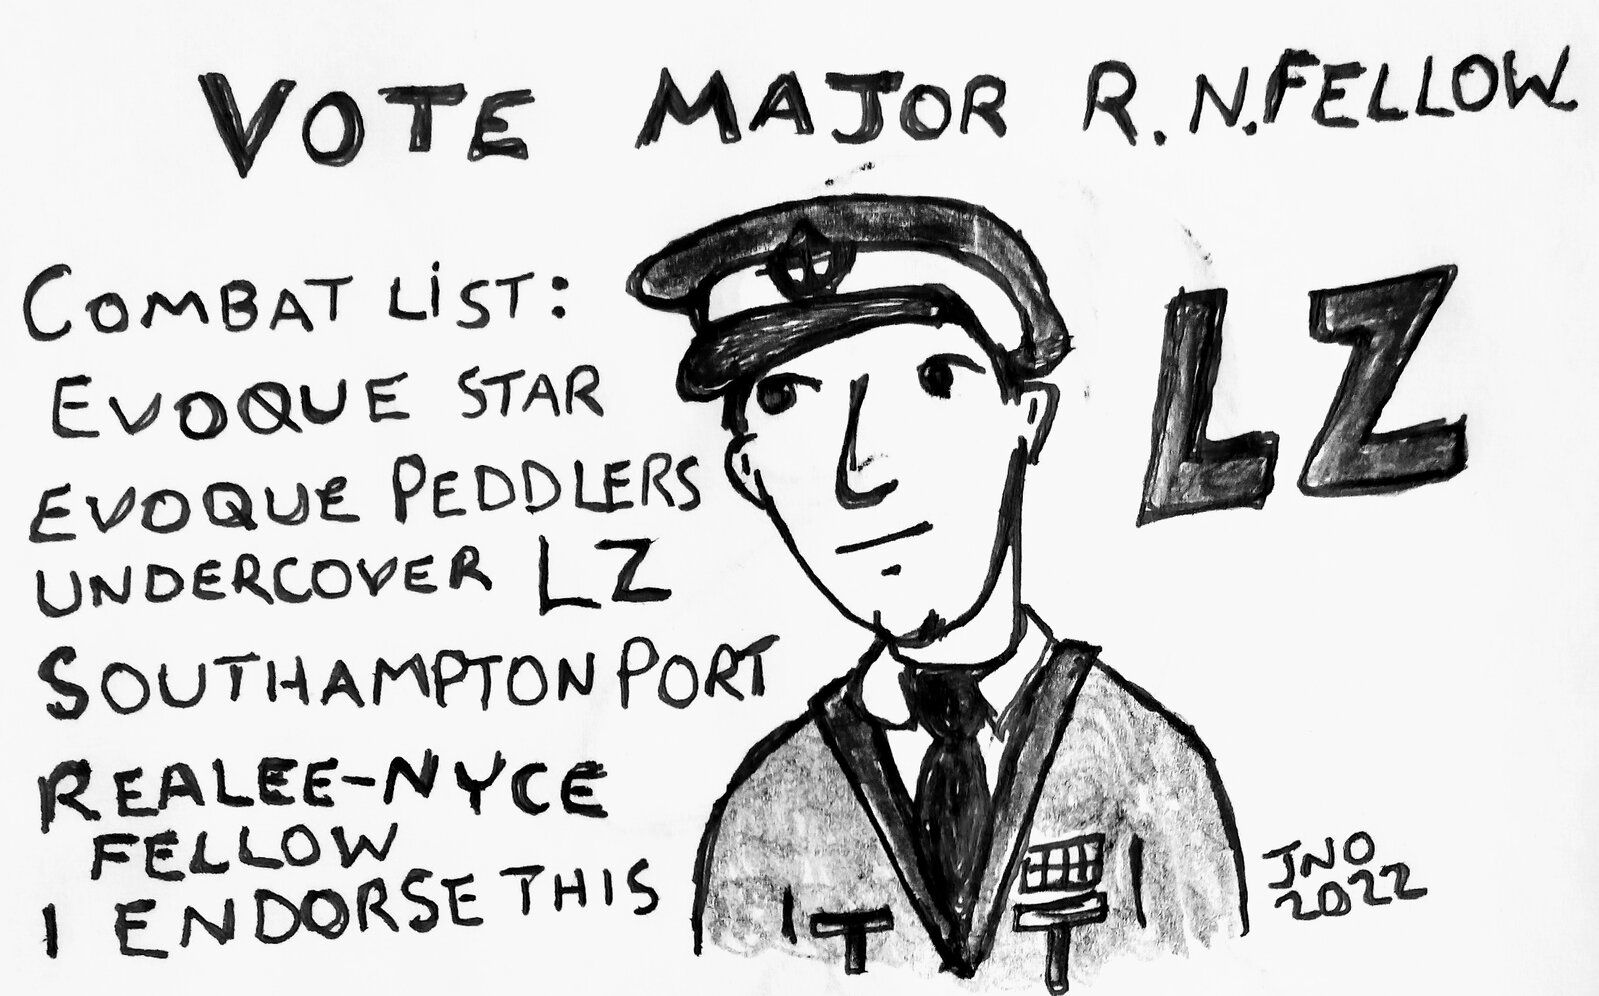 VOTE MAJOR R. N. FELLOW
COMBAT LIST:
EVOQUE STAR
EVOQUE PEDDLERS
UNDERCOVER LZ
SOUTHAMPTON PORT
REALEE-NYCE
FELLOW
I ENDORSE THIS
LZ
JNO
2022